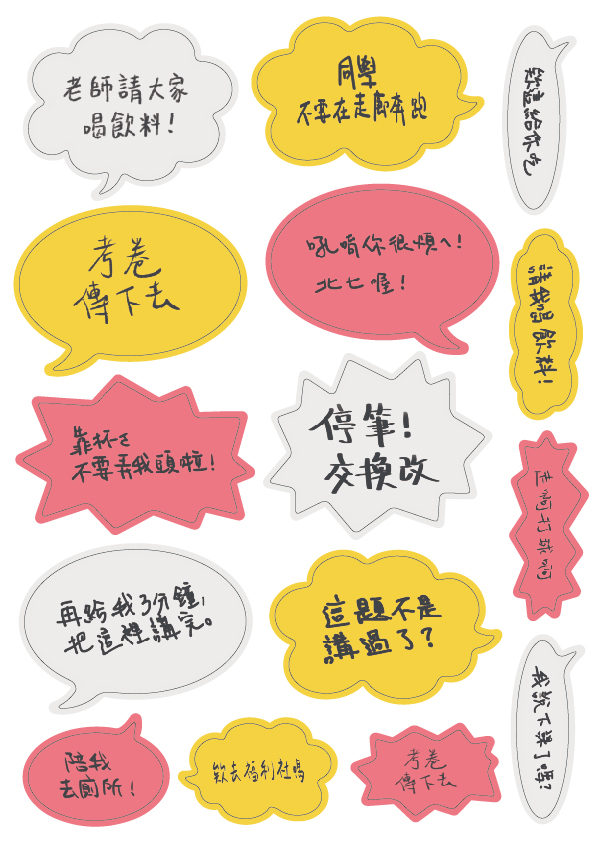 老師請大家
喝飲料!
同學
不要在走廊奔跑
欸這給你吃
考卷
傳下去
吼唷你很煩ㄟ!
北七喔!
請我喝飲料!
靠杯ㄛ
不要弄我頭啦!
停筆!
交換改
走啊打球啊
再給我3分鐘,
把這裡講完。
這題不是
講過了?
我說下課了嗎?
陪我
去廁所!
欸去福利社嗎
考卷
傳下去